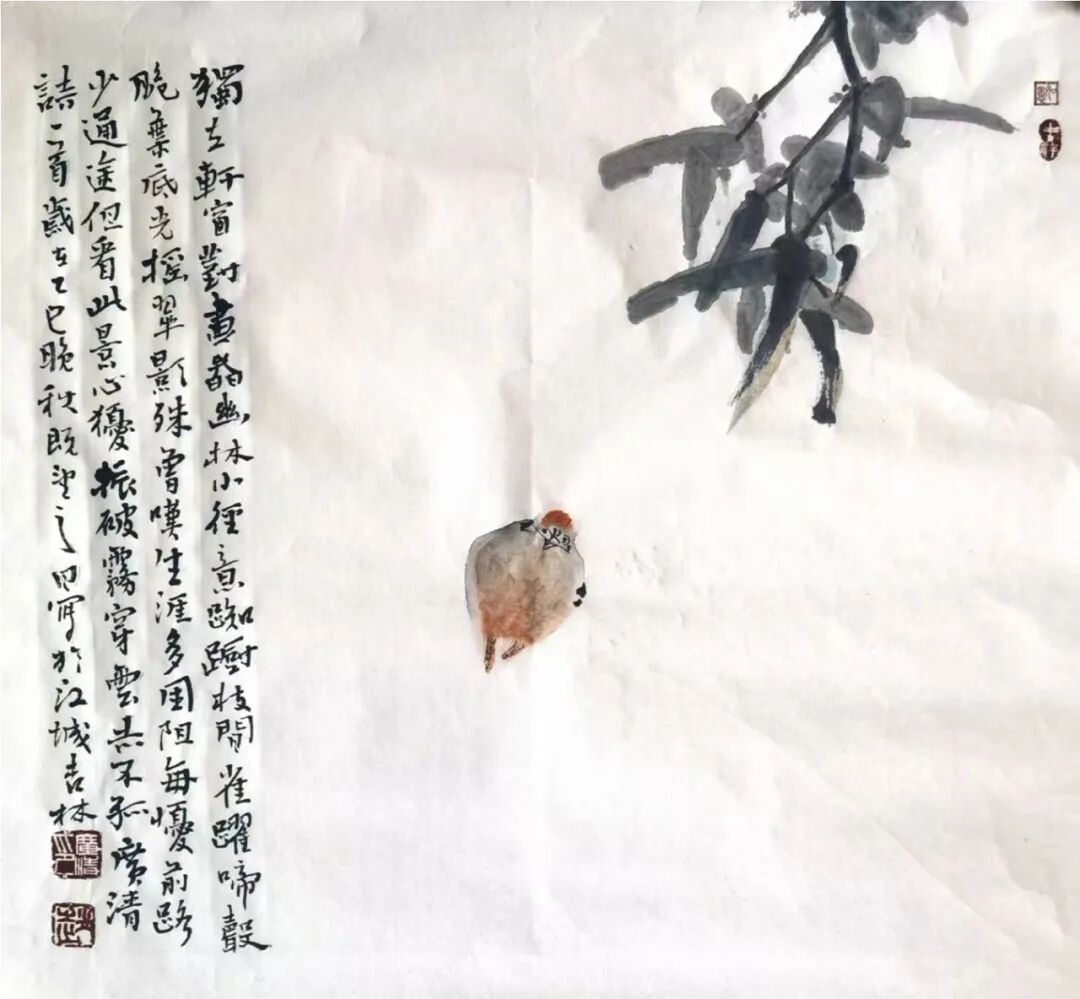 獨立軒窗對畫啚幽林小徑意踟躕枝間雀躍啼聲
脆葉底光搖翠影殊曾嘆生涯多困阻每懮前路
少通途但看此景心振破霧穿雲志不孤廣清
詩一首歲在乙巳晚秋既望之日寫於江城吉林